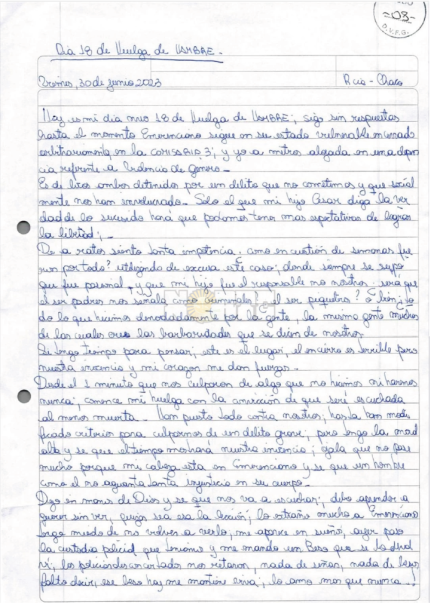 -03-
Dia 18 de Huelga de HAMBRE.-
Viernes, 30 de junio 2023 Rcia - Chaco
Hoy es mi día nro 18 de Huelga de HAMBRE; sigo sin respuestas
hasta el momento Emerenciano sigue en su estado vulnerable encerrado
arbitrariamente en la COMISARIA 3°; y yo a metros alojada en una depen
cia referente a Violencia de Genero.-
Es decir ambos detenidos por un delito que no cometimos y que social
mente nos han involucrado.- Solo el que mi hijo Cesar diga la ver
dad de lo sucedido hará que podamos tener mas espectativas de lograr
la libertad;
De a ratos siento tanta impotencia; como en cuestión de semanas fue
ron por todo? utilizando de excusa este caso; donde siempre se supo
que fue personal, y que mi hijo fue el responsable no nosotros; será que
el ser padres nos señala como criminales? el ser piqueteros? o bien
do lo que hicimos denodadamente por la gente, la misma gente muchos
de los cuales creo las barbaridades que se dicen de nosotros.
Si tengo tiempo para pensar; este es el lugar, el encierro es terrible pero
nuestra inocencia y mi corazon me dan fuerzas.-
Desde el 1 minuto que nos culparon de algo que no hicimos ni haremos
nunca; comence mi huelga con la convicción de que seré escuchada
al menos muerta.- Han puesto todo contra nosotros; hasta han modi
ficado criterios para culparnos de un delito grave; pero tengo la moral
alta y se que el tiempo mostrará nuestra inocencia; ojala que no pase
mucho porque mi cabeza esta en Emerenciano y se que un hombre
como el no aguanta tanta injusticia en su cuerpo.-
Dejo en manos de Dios y se que nos va a escuchar; debo aprender a
querer sin ver, quizas sea esa la lección; lo extraño mucho a Emerenciano
tengo miedo de no volver a verlo, me aparece en sueños, ayer paso
la custodia policial que tenemos y me mando un Beso que se lo devol
ví; los policias descarados nos retaron, nada de señas, nada de besos
falto decir; ese beso hoy me mantiene erva; lo amo mas que nunca..!